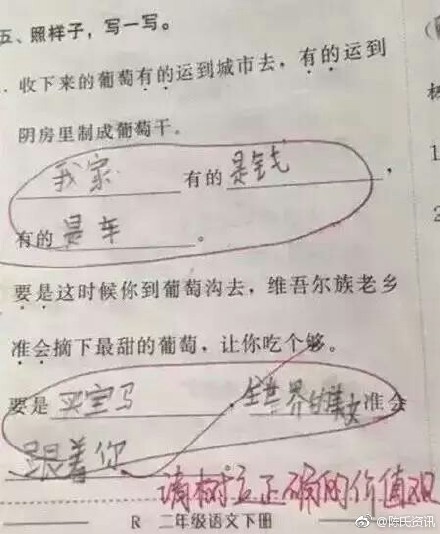 五、照样子，写一写。
收下来的葡萄有的运到城市去，有的运到
阴房里制成葡萄干。
我家有的是钱，
有的是车。
要是这时候你到葡萄沟去，维吾尔族老乡
准会摘下最甜的葡萄，让你吃个够。
要是买宝马，全世界的美女准会
跟着你
请树立正确的价值观
R 二年级语文下册
@陈氏资讯